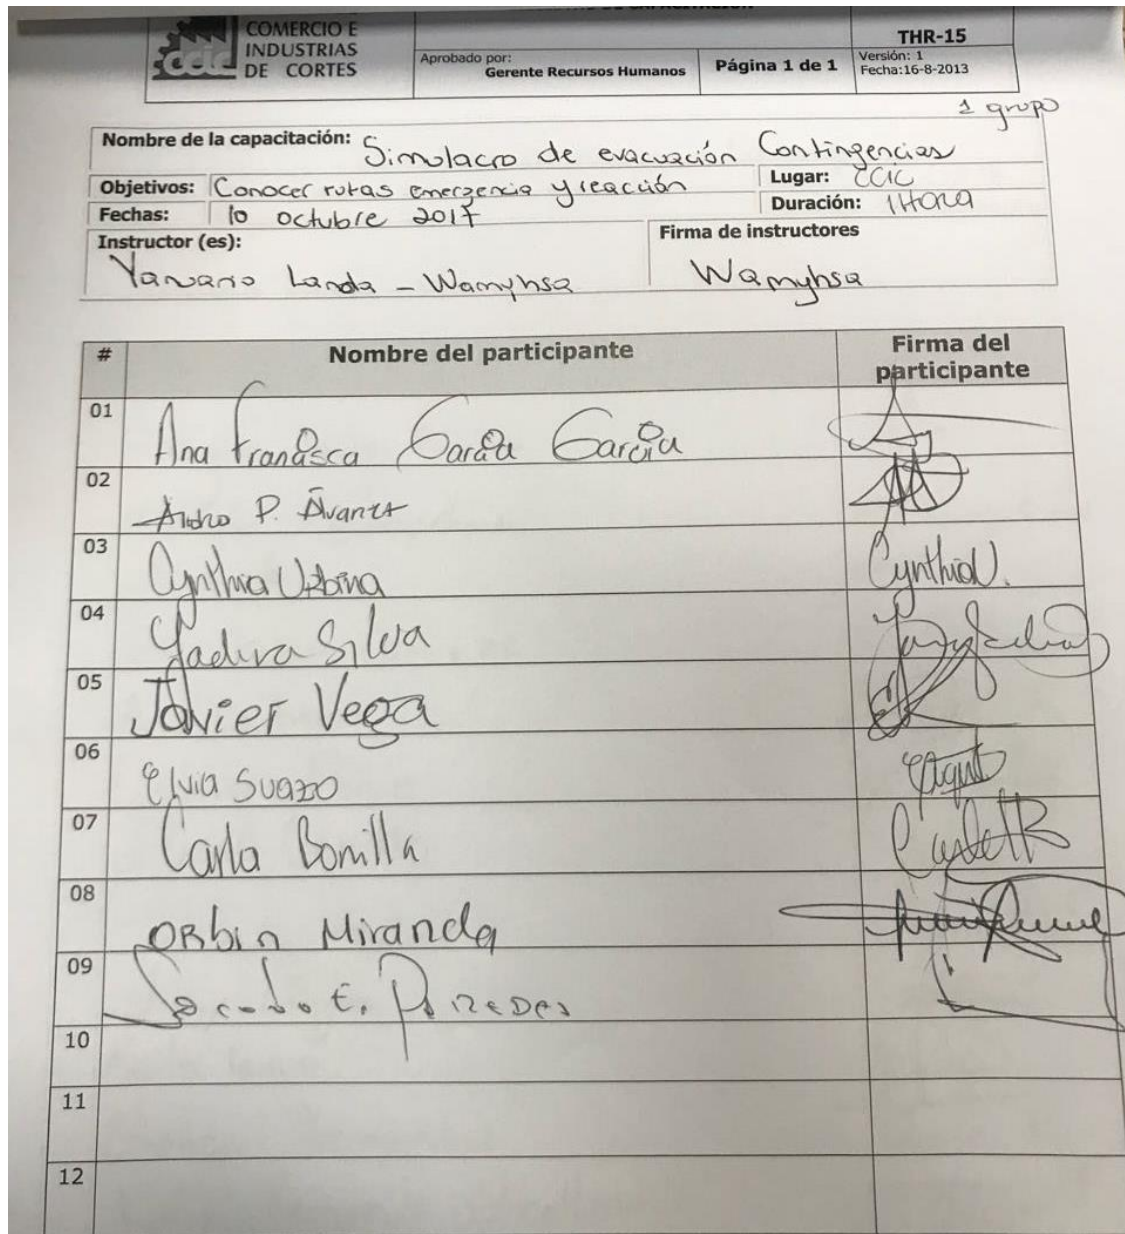 COMERCIO E
INDUSTRIAS
DE CORTES
THR-15
Aprobado por:
Gerente Recursos Humanos
Página 1 de 1
Versión: 1
Fecha:16-8-2013
1 grupo
Nombre de la capacitación: Simulacro de evacuación Contingencias
Objetivos: Conocer rutas emergencia y reacción
Lugar: CCIC
Fechas: 10 octubre 2017
Duración: 1 Hora
Instructor (es):
Firma de instructores
Landa - Wamyhsa
Wamyhsa
# Nombre del participante Firma del participante
01 Ana Francisca García García
02 P.
03 Cynthia Urbina CynthiaU.
04 Yadira Silva
05 Javier Vega
06 Elvia Suazo
07 Carla Bonilla
08 Orbin Miranda
09 E. Paredes
10
11
12